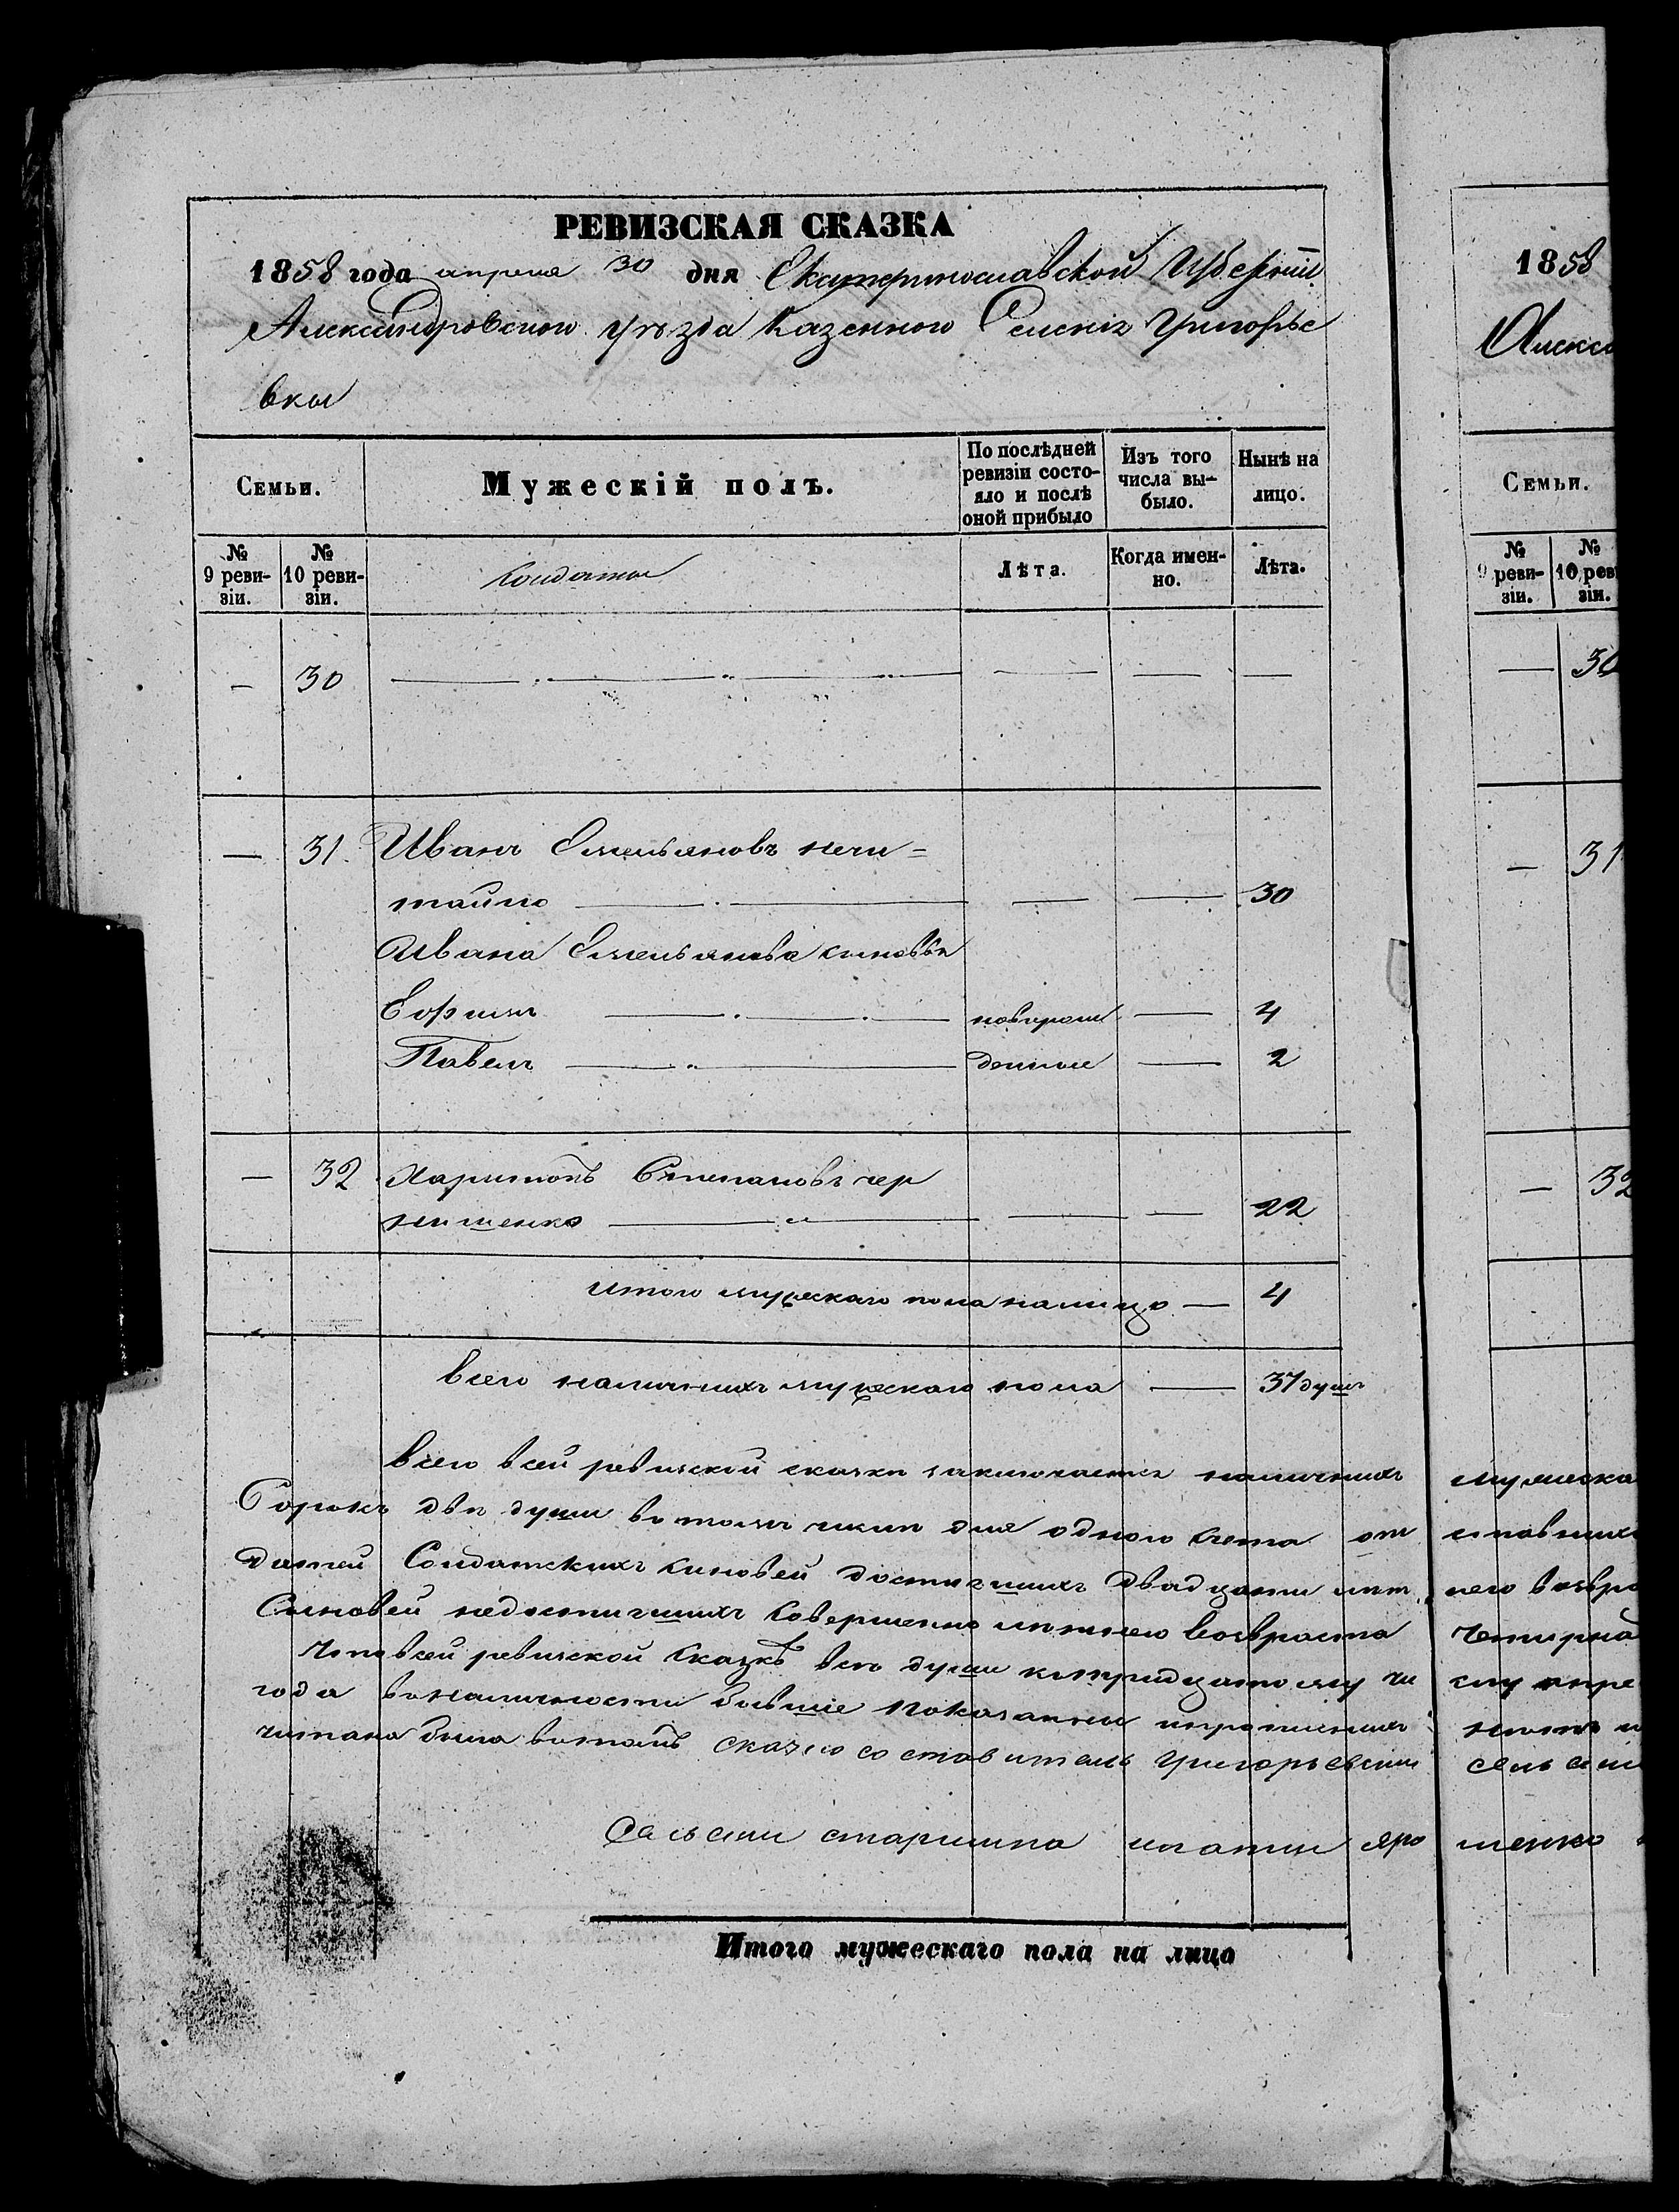 РЕВИЗСКАЯ СКАЗКА
1858 года апреля 30 дня Екатеринославской Губернiи
Александровского уезда Казенного Селенiя Григорье
вки
Семьи.
Мужескiй полъ.
По послѣдней ревизiи состо-
яло и послѣ оной прибыло
Изъ того числа вы-
было.
Нынѣ на лицо.
№ 9 реви-
зiи.
№ 10 реви-
зiи.
Солдаты
Лѣта.
Когда имен-
но.
Лѣта.
— 30 — — — —
— 31. Иванъ Емельяновъ нечи=
тайло — — — 30
Ивана Емельянова сыновья
Ефимъ — новорож — 4
Павелъ — денные — 2
— 32 Харитонъ Степановъ чер
нишенко — — — 22
итого мужескаго пола налицо — 4
всего наличныхъ мужескаго пола — 37 душъ
всего всей ревизской сказки заключается наличныхъ
Сорокъ две души въ томъ числе для одного счета от
Солдатскихъ сыновей достигшихъ двадцати лет
Сыновей недостигшихъ совершенно летнего возвраста
Что всей ревизской сказкѣ все души ктридцатому чи
года вналичности бывшiе показанны ипрописныхъ
читана была вчомъ сказку составитель Григорьевский
Сельский старшина игнатий яро
Итого мужескаго пола на лицо
1858
Алекса
Семьи.
№ 9 реви-
зiи.
№ 10 рев
зiи.
— 30
— 31
— 32
мужеска
его возвра
четырна
слу апре
сельский
шенко